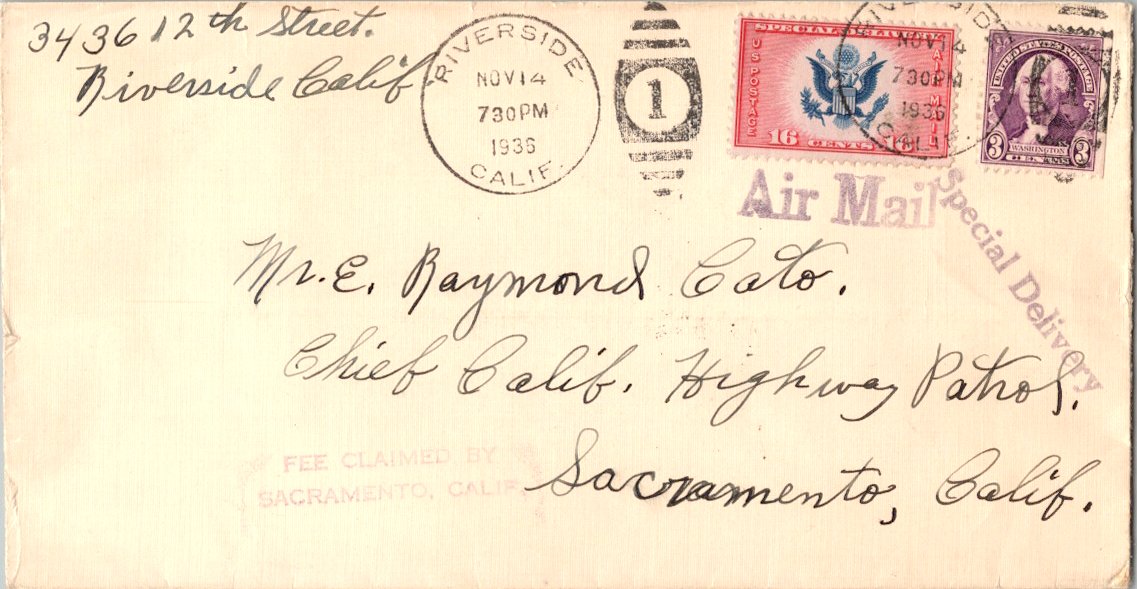 3436 12th Street.
Riverside Calif.
RIVERSIDE
NOV 14
730 PM
1936
CALIF.
1
SPECIAL DELIVERY
US POSTAGE
AIR MAIL
16 CENTS 16
RIVERSIDE
NOV 14
730 PM
1936
CALIF.
UNITED STATES POSTAGE
3 WASHINGTON 3
Air Mail
Special Delivery
Mr. E. Raymond Cato.
Chief Calif. Highway Patrol.
Sacramento, Calif.
FEE CLAIMED BY
SACRAMENTO, CALIF.